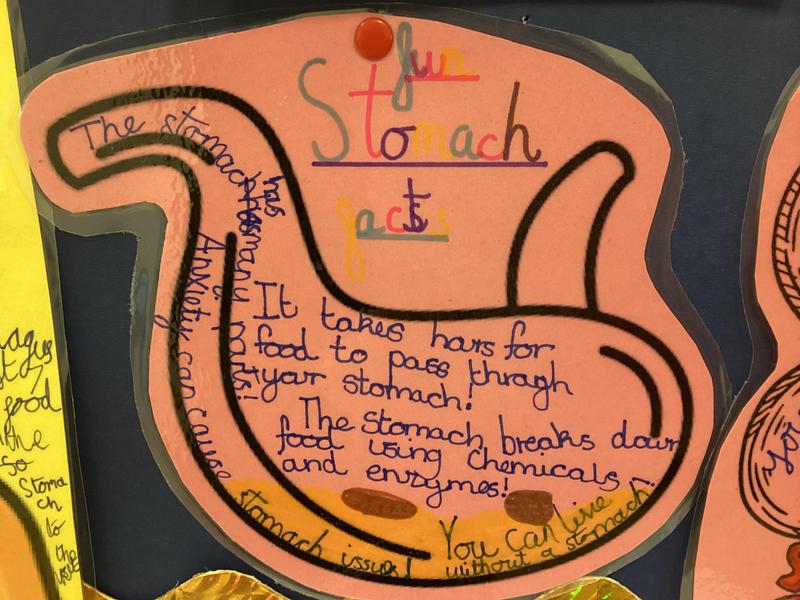 fun
Stomach
facts
The stomach has
many parts!
Anxiety can cause
stomach issues!
It takes hars for
food to pass thragh
your stomach!
The stomach breaks down
food using chemicals
and enzymes!
You can live
without a stomach!
food
the
So
Stoma
ch
to
the